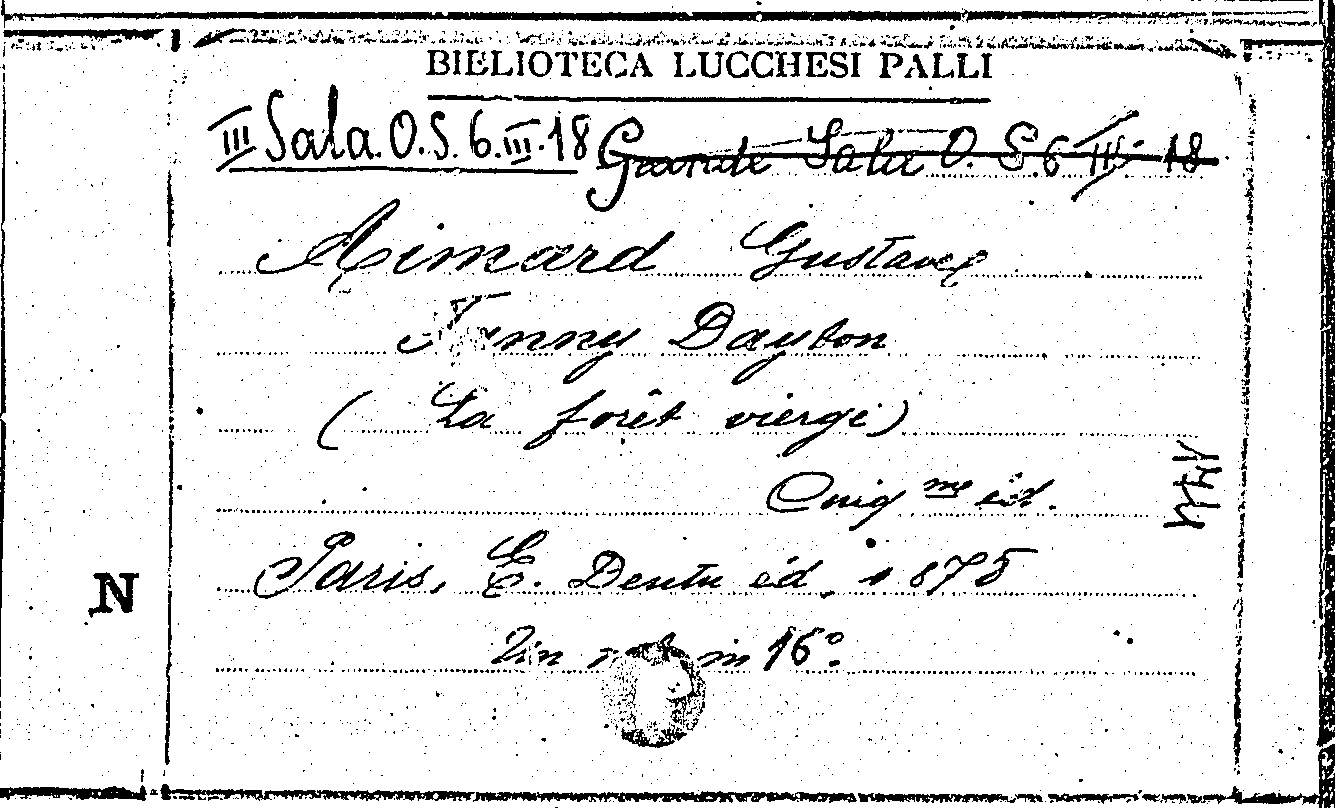 BIBLIOTECA LUCCHESI PALLI
III Sala O.S. 6.III.18 Grande Sala O. S. 6 III 18
Aimard Gustave
Fanny Dayton
( La forêt vierge)
Cinq me éd.
Paris, E. Dentu éd. 1875
Un in 16°.
N